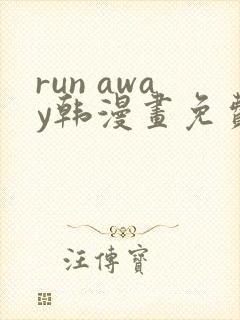 run awa
y韩漫畫免費
汪傳寶